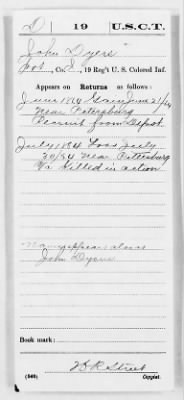 D 19 U.S.C.T.
John Dyers
pvt, Co. I, 19 Reg't U. S. Colored Inf.
Appears on Returns as follows:
June 1864 Gain June 21/64
Near Petersburg
Recruit from Depot.
July 1864 Loss July
30/64 Near Petersburg
Va Killed in action
Name appears also as
John Dyers
Book mark:
(546) Copyist.